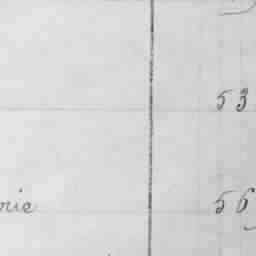 53
rie 56